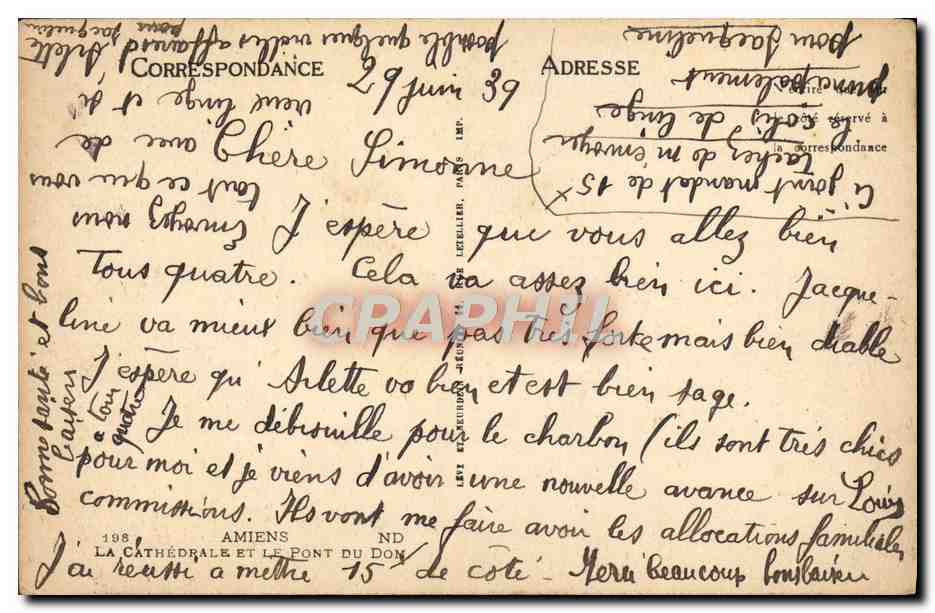 CORRESPONDANCE
ADRESSE
29 juin 39
Chère Simonne
J'espère que vous allez bien
tous quatre. Cela va assez bien ici. Jacque-
line va mieux bien que pas très forte mais bien diable
J'espère qu'Arlette va bien et est bien sage.
Je me débrouille pour le charbon (ils sont très chics
pour moi et je viens d'avoir une nouvelle avance sur Louis
commissions. Ils vont me faire avoir les allocations familiales
J'ai réussi à mettre 15 de côté - Merci beaucoup bons baisers
Bonne santé et bons
baisers
à tous
quatre
Ci joint mandat de 15
tachez de m'envoyer
le colis de linge
principalement
pour Jacqueline
Envoyez nous
tout ce que vous
avec de
vieux linge et si
possible quelques vieilles affaires d'Arlette
pour Jacqueline
la correspondance
LÉVY ET NEURDEIN RÉUNIS 44 RUE LETELLIER, PARIS IMP.
198 AMIENS ND
LA CATHÉDRALE ET LE PONT DU DON
CPAPHIL